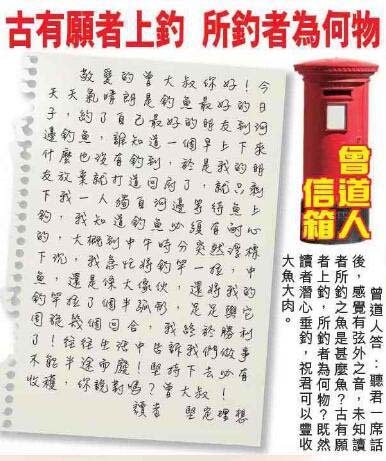 古有願者上釣 所釣者為何物
敬愛的曾大叔你好!今
天天氣晴朗是釣魚最好的日
子,約了自己最好的朋友到河
邊釣魚,誰知道一個早上下來
什麼也沒有釣到,於是我的朋
友放棄就打道回府了,就只剩
下我一人獨自河邊等待魚上
鉤,我知道釣魚必須有耐心
的,大概到中午時分突然浮標
下沉,我急忙將釣竿一拉,中
魚,還是條大傢伙,還將我的
釣竿拉了個半弧形,足足與它
周旋幾個回合,我終於勝利
了!往往生活中告訴我們做事
不能半途而廢!堅持下去必有
收穫,你說對嗎?曾大叔!
讀者 堅定理想
曾道人
信箱
曾道人答:聽君一席話
後,感覺有弦外之音,未知讀
者所釣之魚是甚麼魚?古有願
者上釣,所釣者為何物?既然
讀者潛心垂釣,祝君可以豐收
大魚大肉。